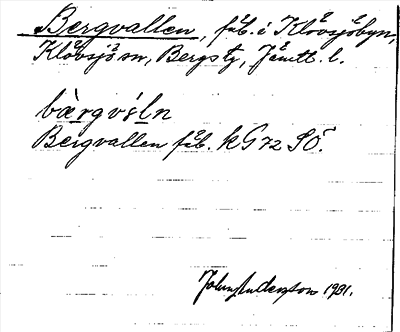 Bergvallen, fäb. i Klövsjöbyn,
Klövsjö sn, Bergs tg, Jämtl. l.
bàrgvśln
Bergvallen fäb. kG72 SO.
John Anderson 1931.